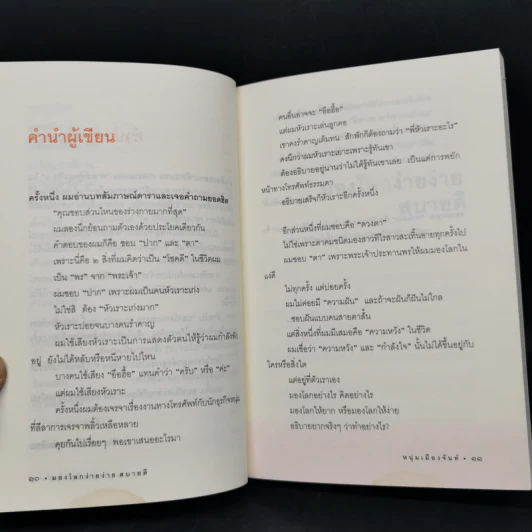 คำนำผู้เขียน
ครั้งหนึ่ง ผมอ่านบทสัมภาษณ์ดาราและเจอคำถามยอดฮิต
"คุณชอบส่วนไหนของร่างกายมากที่สุด"
ผมลองนึกย้อนถามตัวเองด้วยประโยคเดียวกัน
คำตอบของผมก็คือ ชอบ "ปาก" และ "ตา"
เพราะนี่คือ ๒ สิ่งที่ผมคิดว่าเป็น "โชคดี" ในชีวิตผม
เป็น "พร" จาก "พระเจ้า"
ผมชอบ "ปาก" เพราะผมเป็นคนหัวเราะเก่ง
ไม่ใช่สิ ต้อง "หัวเราะเก่งมาก"
หัวเราะบ่อยจนบางคนรำคาญ
ผมใช้เสียงหัวเราะเป็นการแสดงตัวตนให้รู้ว่าผมกำลังฟัง
อยู่ ยังไม่ได้หลับหรือหนีหายไปไหน
บางคนใช้เสียง "อือฮื้อ" แทนคำว่า "ครับ" หรือ "ค่ะ"
แต่ผมใช้เสียงหัวเราะ
ครั้งหนึ่งผมต้องเจรจาเรื่องงานทางโทรศัพท์กับนักธุรกิจหนุ่ม
ที่ลีลาการเจรจาพลิ้วเหลือหลาย
คุยกันไปเรื่อยๆ พอเขาเสนออะไรมา
๑๐ • มองโลกง่ายง่าย สบายดี
คนอื่นอาจจะ "อือฮื้อ"
แต่ผมหัวเราะเล่นลูกคอ
เขาคงรำคาญเต็มทน สักพักก็ต้องถามว่า "พี่หัวเราะอะไร"
คงนึกว่าผมหัวเราะเยาะเพราะรู้ทันเขา
ต้องอธิบายอยู่นานว่าไม่ได้รู้ทันเขาเลย เป็นแค่การพยัก
หน้าทางโทรศัพท์ธรรมดา
อธิบายเสร็จก็หัวเราะอีกครั้งหนึ่ง
อีกส่วนหนึ่งที่ผมชอบคือ "ดวงตา"
ไม่ใช่เพราะตาคมชนิดมองสาวที่ไรสาวสะเทิ้นอายทุกครั้งไป
ผมชอบ "ตา" เพราะพระเจ้าประทานพรให้ผมมองโลกใน
แง่ดี
ไม่ทุกครั้ง แต่บ่อยครั้ง
ผมไม่ค่อยมี "ความฝัน" และถ้าจะฝันก็ฝันไม่ไกล
..ชอบฝันแบบคนสายตาสั้น
แต่สิ่งหนึ่งที่ผมมีเสมอคือ "ความหวัง" ในชีวิต
ผมเชื่อว่า "ความหวัง" และ "กำลังใจ" นั้นไม่ได้ขึ้นอยู่กับ
ใครหรือสิ่งใด
แต่อยู่ที่ตัวเราเอง
มองโลกอย่างไร คิดอย่างไร
มองโลกให้ยาก หรือมองโลกให้ง่าย
อธิบายยากจริงๆ ว่าทำอย่างไร?
หนุ่มเมืองจันท์ • ๑๑